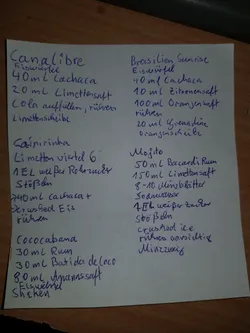 Canalibre
Eiswürfel
40ml Cachaca
20ml Limettensaft
Cola auffüllen, rühren
Limettenscheibe
Caipirinha
Limetten viertel 6
1 EL weißer Rohrzucker
Stößeln
40ml cachaca +
crushed Eis
rühren
Cococabana
30ml Rum
30ml Batida de Coco
80ml Ananassaft
Eiswürfel
Shaken
Brasilian Sunrise
Eiswürfel
40ml Cachaca
10ml Zitronensaft
100ml Orangensaft
rühren
20ml Grenadine
Orangenscheibe
Mojito
50ml Bacardi Rum
150ml Limettensaft
8-10 Minzblätter
Sodawasser
1 EL weißer Zucker
Stößeln
crushed ice
rühren vorsichtig
Minzzweig